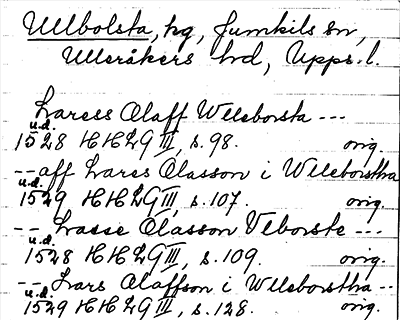 Ullbolsta, hg, Jumkils sn,
Ulleråkers hd, Upps. l.
Laress Olaff Wlleborsta ---
u.d.
1528 HH Z G III, s. 98. orig.
-- aff Lares Olasson i Wlleborstha
u.d.
1529 HH Z G III, s. 107. orig.
-- Lasse Olasson Vlborste ---
u.d.
1528 HH Z G III, s. 109. orig.
-- Lars Olaffson i Wlleborstha --
u.d.
1529 HH Z G III, s. 128. orig.